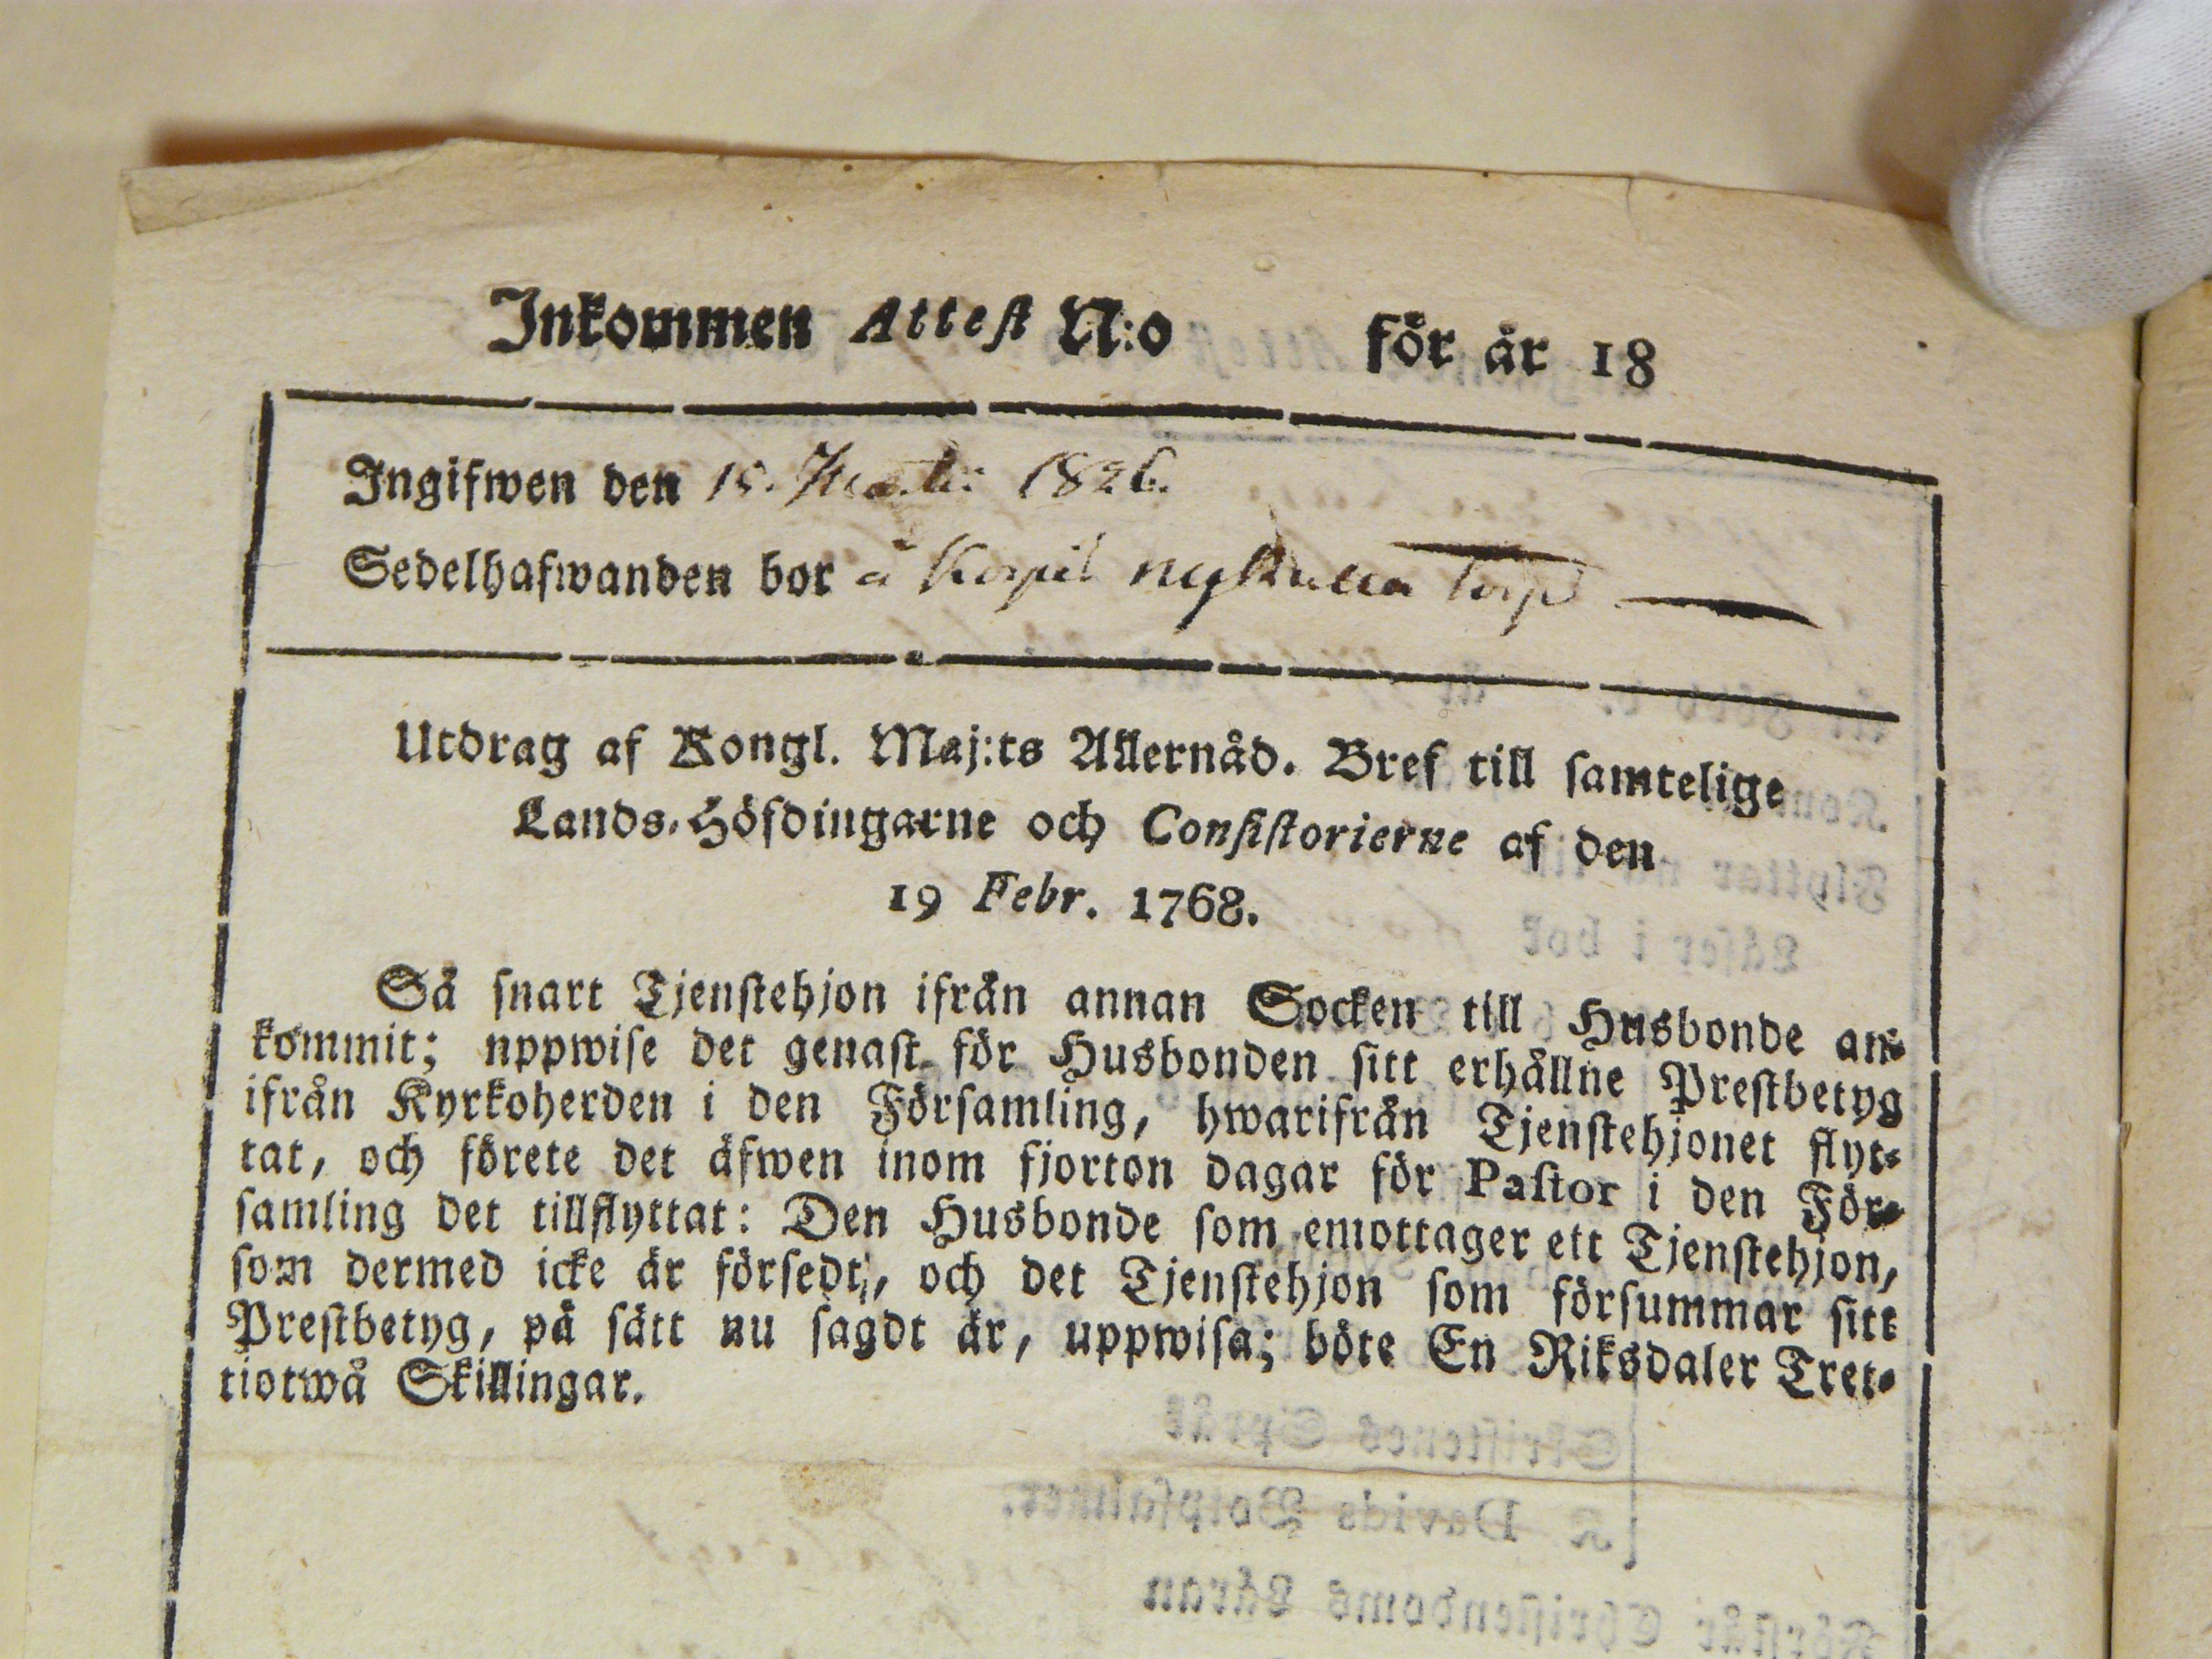 Inkommen Attest N:o för år 18
Ingifwen den 15. Martii 1826.
Sedelhafwanden bor å Korpil torp
Utdrag af Kongl. Maj:ts Allernåd. Bref till samtelige
Lands-Höfdingarne och Consistorierne af den
19 Febr. 1768.
Så snart Tjenstehjon ifrån annan Socken till Husbonde an-
kommit; nppwise det genast för Husbonden sitt erhållne Prestbetyg
ifrån Kyrkoherden i den Församling, hwarifrån Tjenstehjonet flyt-
tat, och förete det äfwen inom fjorton dagar för Pastor i den För-
samling det tillflyttat: Den Husbonde som emottager ett Tjenstehjon,
som dermed icke är försedt, och det Tjenstehjon som försummar sitt
Prestbetyg, på sätt nu sagdt är, uppwisa; böte En Riksdaler Tret-
tiotwå Skillingar.